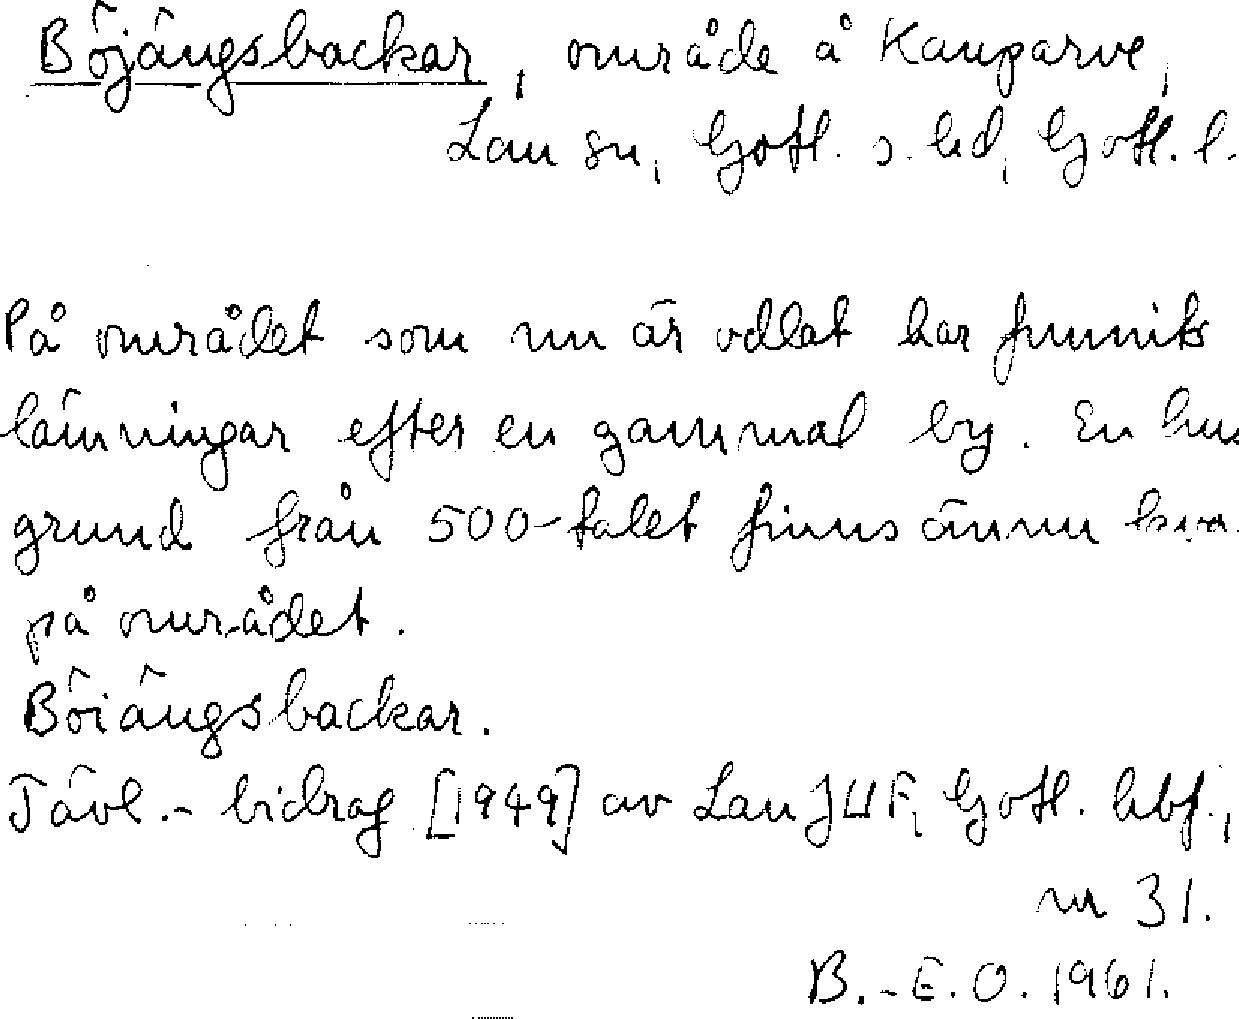 Böjängsbackar, område å Kauparve,
Lau sn, Gotl. s. hd, Gotl. l.
På området som nu är odlat har funnits
lämningar efter en gammal by. En hus
grund från 500-talet finns ännu kvar
på området.
Böiängsbackar.
Tävl.-bidrag [1949] av Lau JUF, Gotl. hbf.,
nr 31.
B.-E. O. 1961.